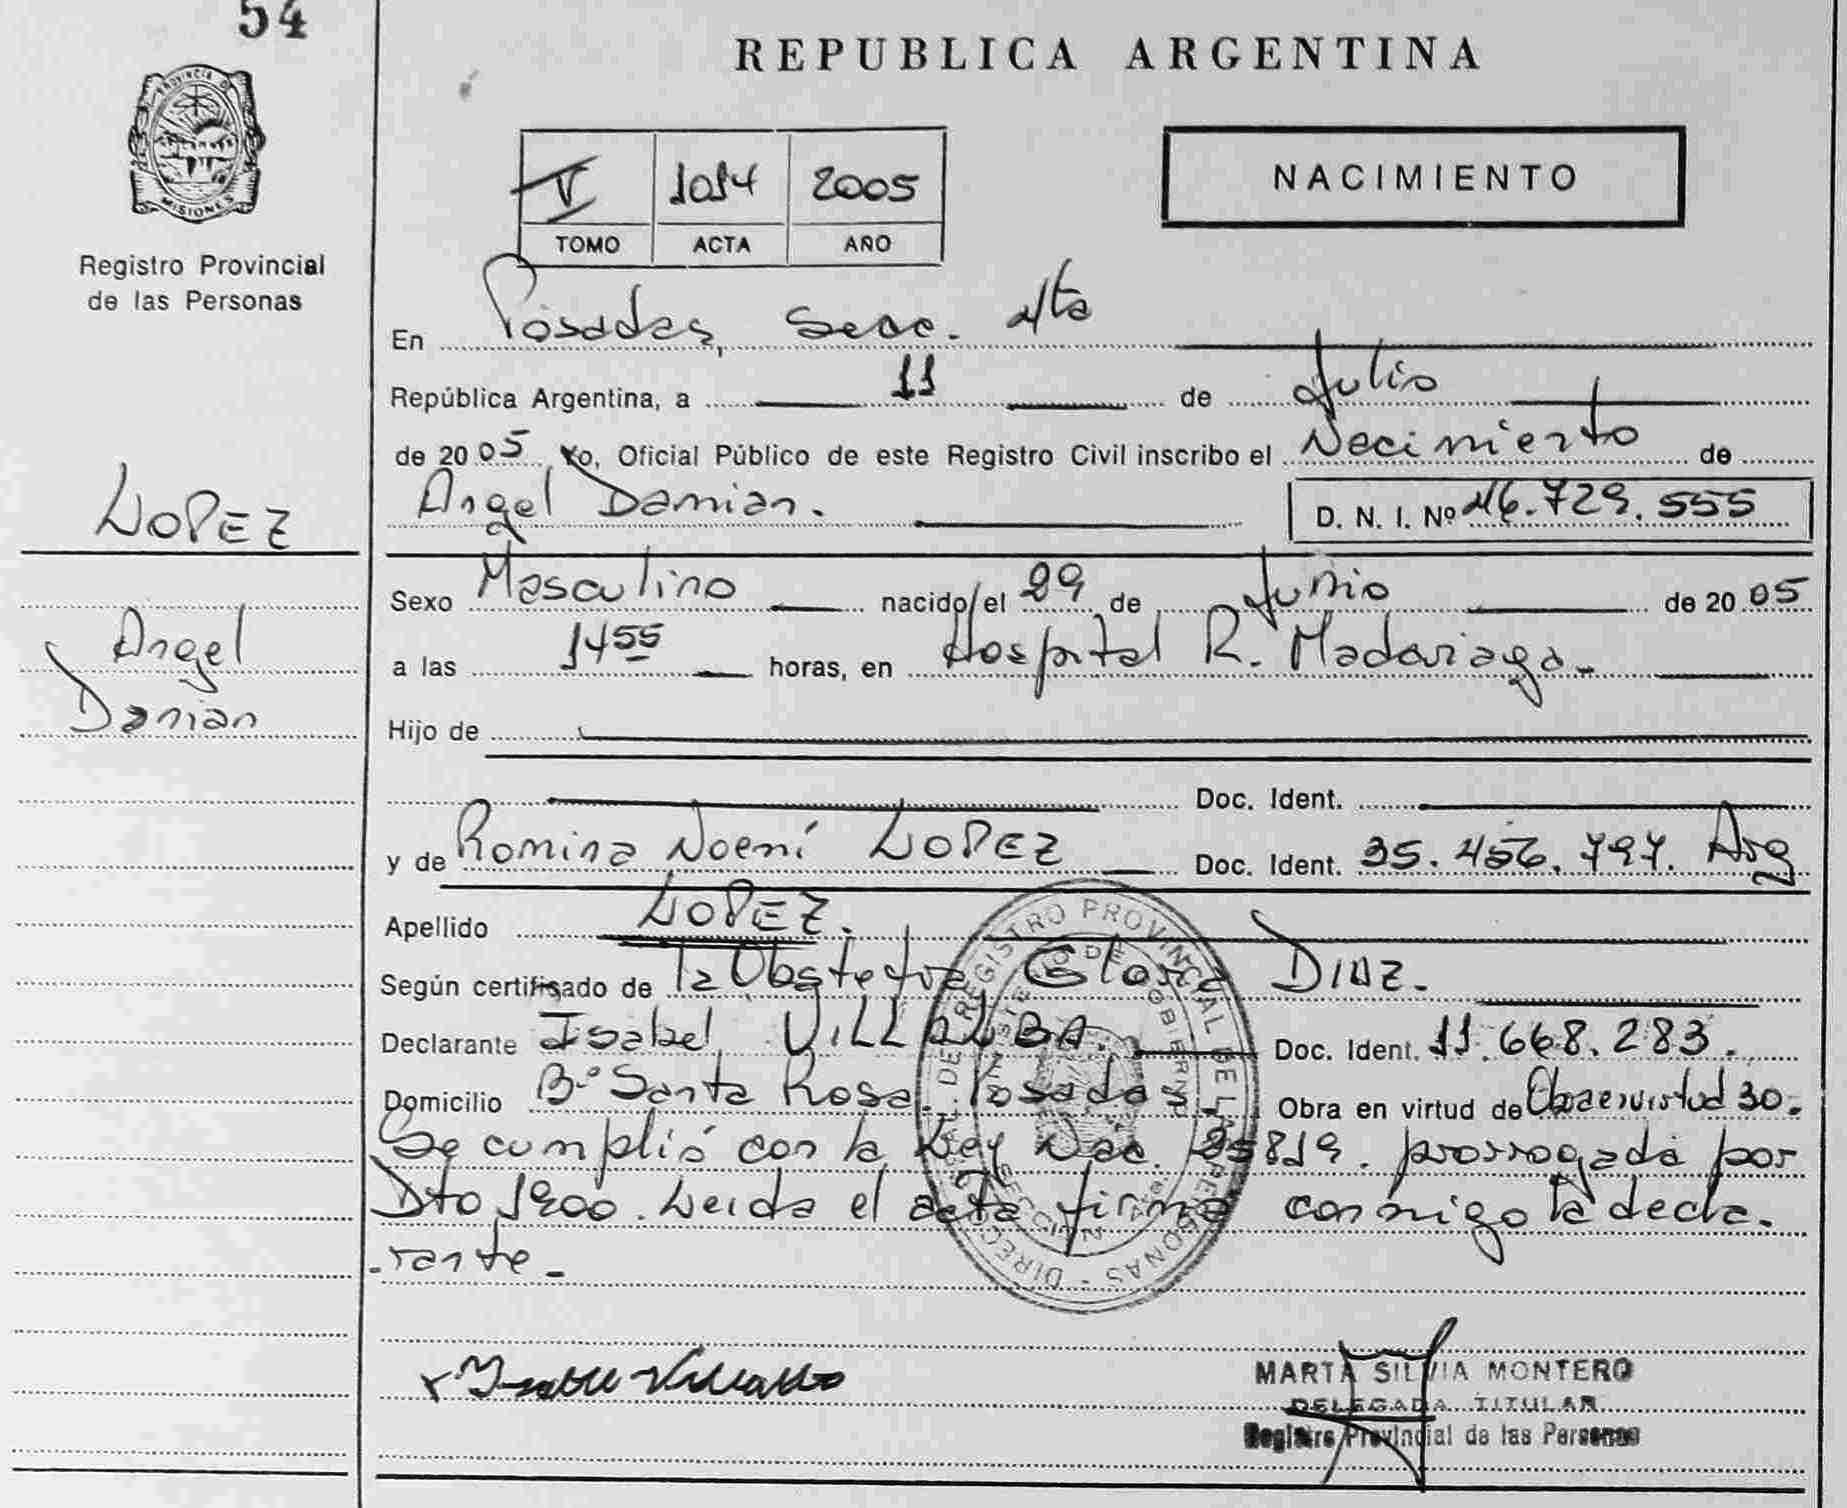 54
PROVINCIA DE
MISIONES
Registro Provincial
de las Personas
LOPEZ
Angel
Damian
REPUBLICA ARGENTINA
V 1014 2005
TOMO ACTA AÑO
NACIMIENTO
En Posadas, Secc. 4ta
República Argentina, a 11 de Julio
de 2005 Yo, Oficial Público de este Registro Civil inscribo el Nacimiento de
Angel Damian. D. N. I. Nº 46.729.555
Sexo Masculino nacido el 29 de Junio de 2005
a las 14 55 horas, en Hospital R. Madariaga.
Hijo de
Doc. Ident.
y de Romina Noemí LOPEZ Doc. Ident. 35.456.797. Arg
Apellido LOPEZ.
Según certificado de la Obstetra Gloria DIAZ.
Declarante Isabel VILLALBA. Doc. Ident. 11.668.283.
Domicilio Bº Santa Rosa. Posadas. Obra en virtud de
Se cumplió con la Ley Nac. 25819. prorrogada por
Dto 1900. Leida el acta firma conmigo la decla-
-rante.
REGISTRO PROVINCIAL DE LAS PERSONAS
Isabel Villalba
MARTA SILVIA MONTERO
DELEGADA TITULAR
Registro Provincial de las Personas